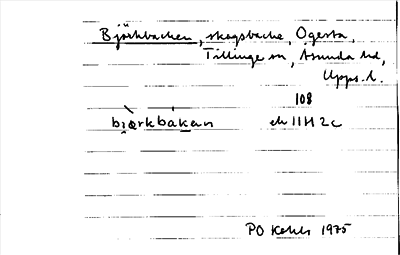 Björkbacken, skogsbacke, Ögesta,
Tillinge sn, Åsunda hd,
Upps. l.
108
bjærkbakan ek 11H 2c
PO 1975